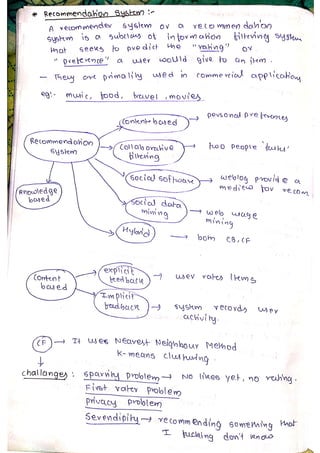 * Recommendation System :-
A recommender system or a recommendation
system is a subclass of information filtering system
that seeks to predict the "rating" or
"preference" a user would give to an item.
- They are primality used in commercial application
eg:- music, food, travel, movies.
Recommendation
system
content based → personal prefrences
collaborative
filtering → two people 
social software → weblog provide a
medium for recom.
social data
mining → web usage
mining
Hybrid → both CB, CF
Knowledge
based
content
based
explicit
feedback → user rates items
Implicit
feedback → system records user
activity.
CF → It uses Nearest Neighbour Method
K-means clustering.
challanges : sparsity problem → No likes yet, no rating.
First rater problem
privacy problem
Serendipity → recommending something that
I don't know